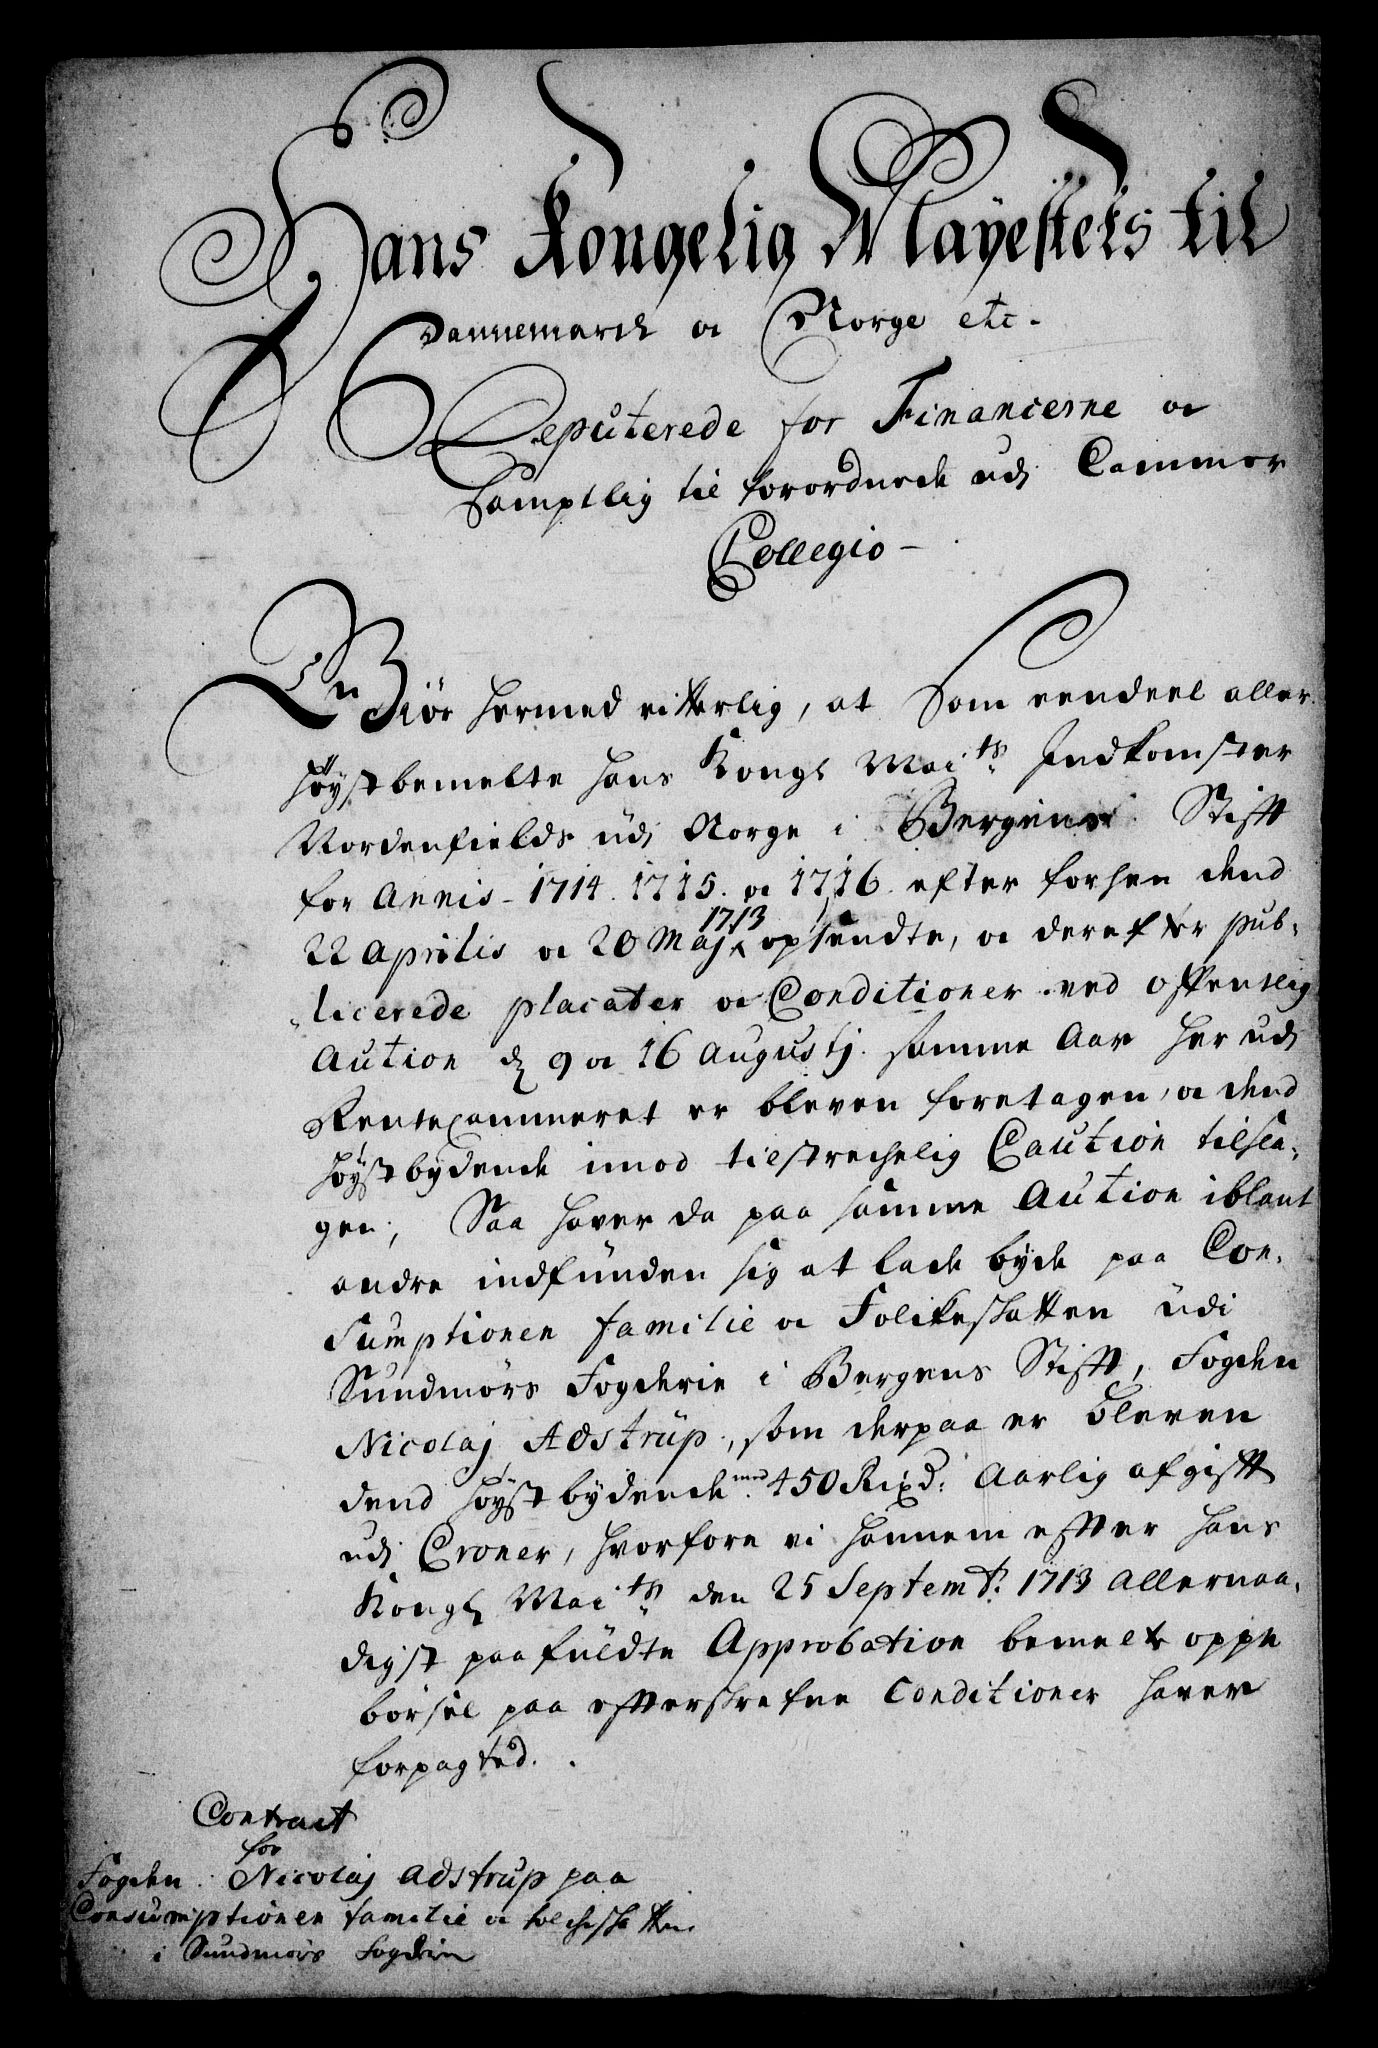 Hans Kongelig Mayestets til
Dannemarck oc Norge etc.
Deputerede for Financerne oc
Samptlig til forordnede udj Cammer
Collegio
Giör hermed vitterlig, at Som eendeel aller
höystbemelte hans Kongl Mai.ts Indkomster
Nordenfields udj Norge i Bergens Stifft
for Annis 1714. 1715. oc 1716. efter forhen dend
22 Aprilis oc 20 Maj 1713 opsendte, oc derefter pub-
licerede placater oc Conditioner ved offentlig
Aution d 9 oc 16 Augustj samme Aar her udj
RenteCammeret er bleven foretagen, oc dend
höystbydende imod tilstrechelig Caution tilsla-
gen, Saa haver da paa samme Aution iblant
andre indfunden sig at lade byde paa Con-
Sumptionen familie oc Folckeskatten udi
Sundmörs Fogderie i Bergens Stifft, Fogden
Nicolaj Astrup, som derpaa er bleven
dend höystbydende med 450 Rixd: Aarlig afgifft
udj Croner, hvorfore vi hannem efter hans
Kongl Mai.ts den 25 Septemb. 1713 Allernaa-
digst paafuldte Approbation bemelte oppe
börsel paa efterskrefne Conditioner haver
forpagted.
Contract
for
Fogden Nicolaj Adstrup paa
Consumptionen familie oc folcheskatten
i Sundmörs Fogderie